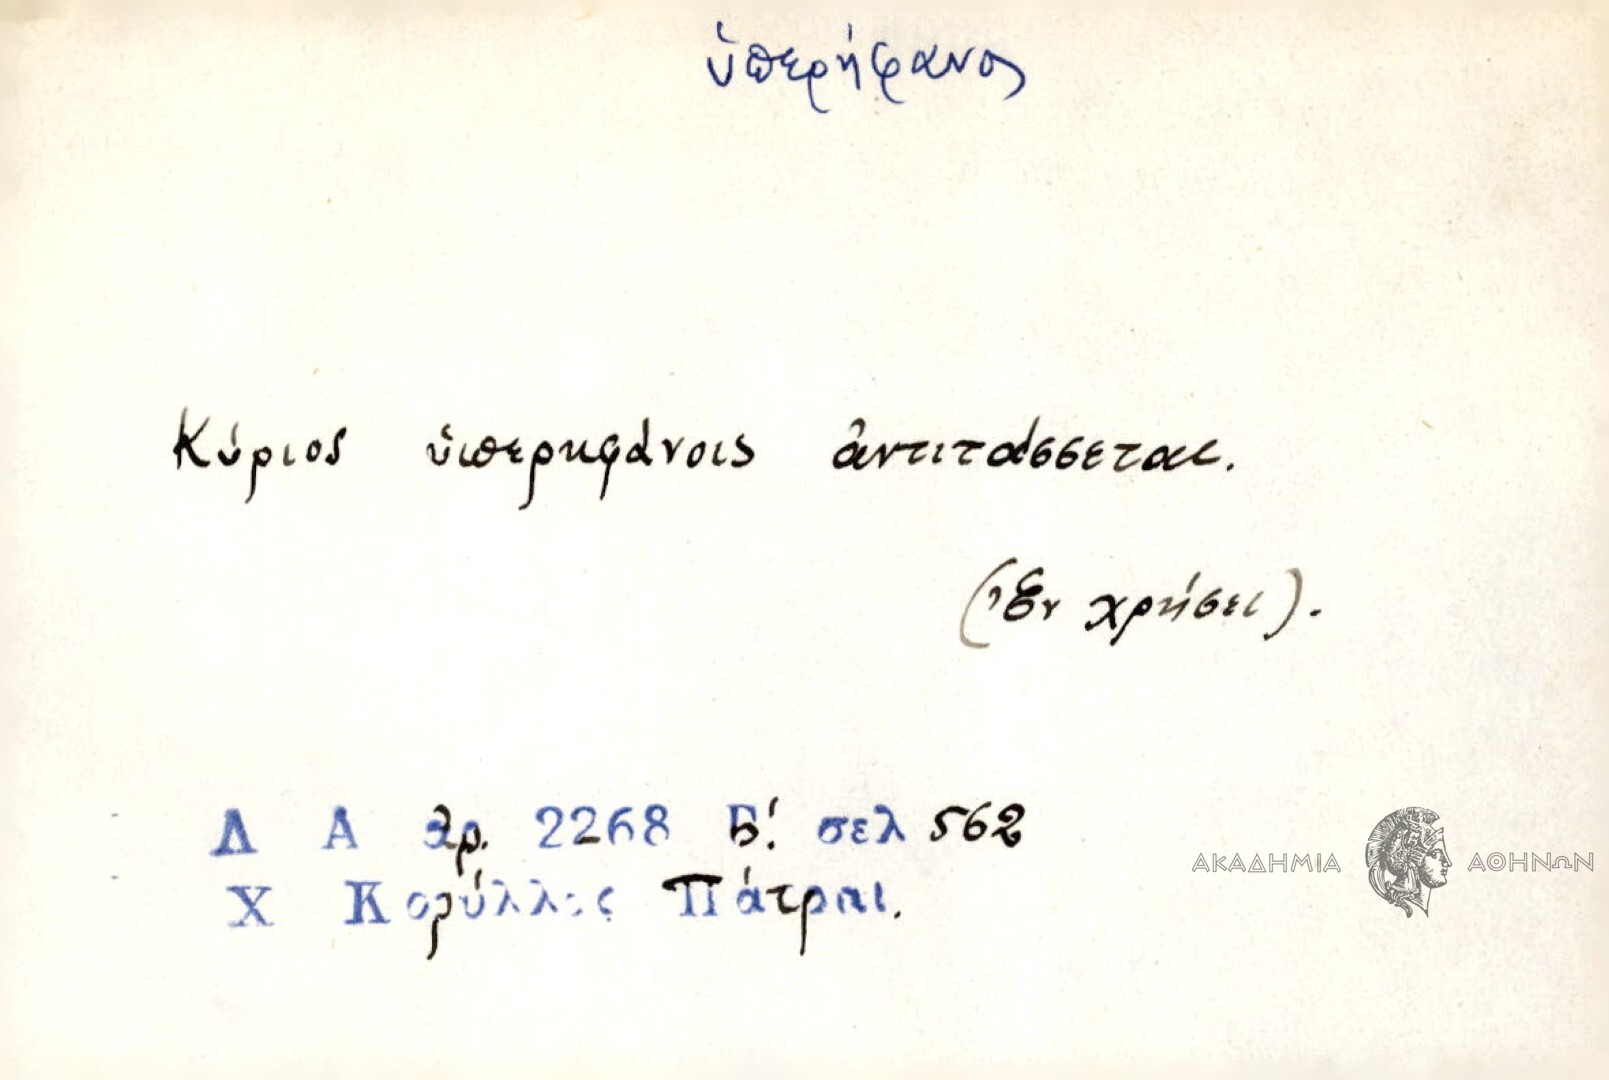 ὑπερήφανος
Κύριος ὑπερηφάνοις ἀντιτάσσεται.
(Ἐν χρήσει).
Λ Α ἀρ. 2268 Β΄. σελ 562
Χ Κορύλλος Πάτραι.
ΑΚΑΔΗΜΙΑ ΑΘΗΝΩΝ